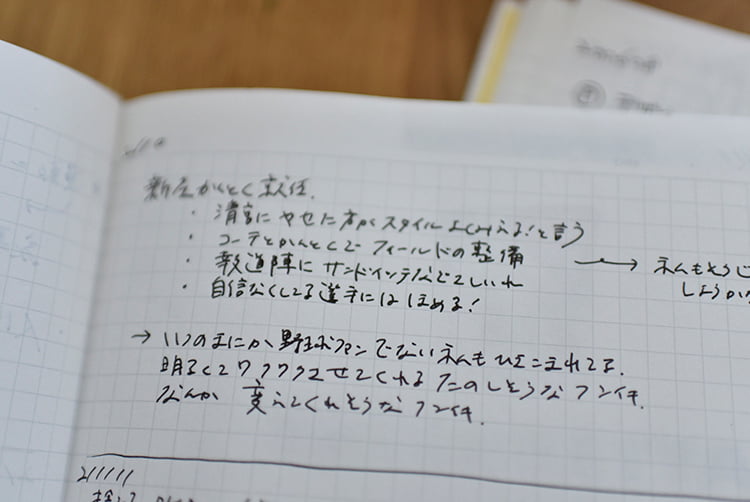 新庄かんとく就任.
・清宮に やせた方がスタイルよくみえる!と言う
・コーチとかんとくで フィールドの整備
・報道陣に サンドイッチなどさしいれ
・自信なくしてる選手には ほめる!
→ わたしもそうじ
しようか
→ いつのまにか 野球ファンでないわたしも ひきこまれてる.
明るくて ワクワクさせてくれる たのしそうな フンイキ.
なんか 変えてくれそうな フンイキ.
211111